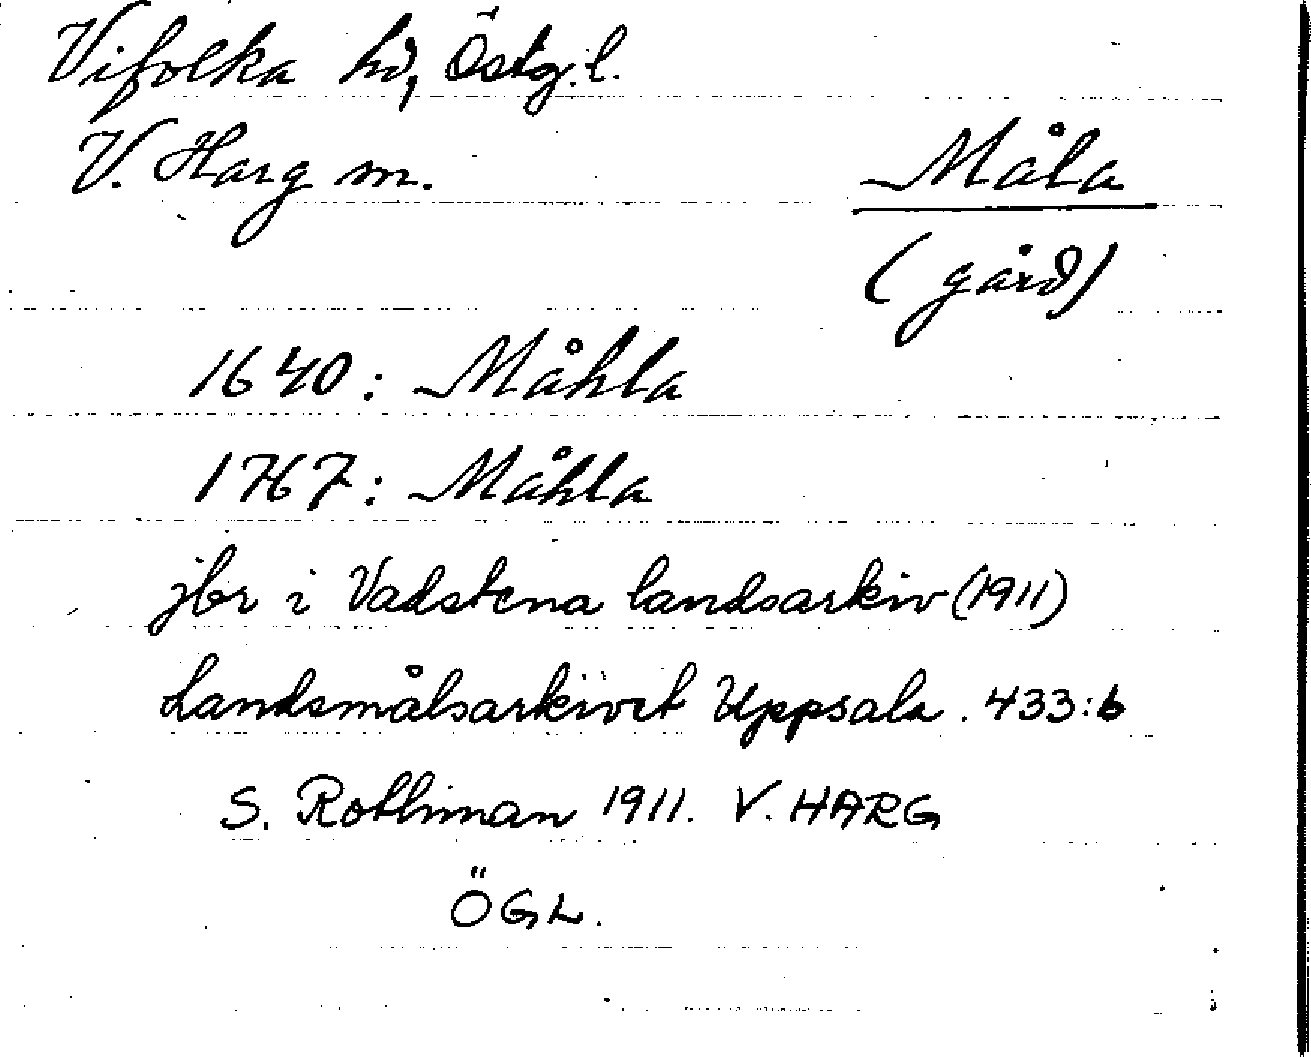 Vifolka hd, Östg.l.
V. Harg sn.
Måla
(gård)
1640: Måhla
1767: Måhla
jbr i Vadstena landsarkiv (1911)
Landsmålsarkivet Uppsala. 433:6
S. Rothman 1911. V. HARG
ÖGL.